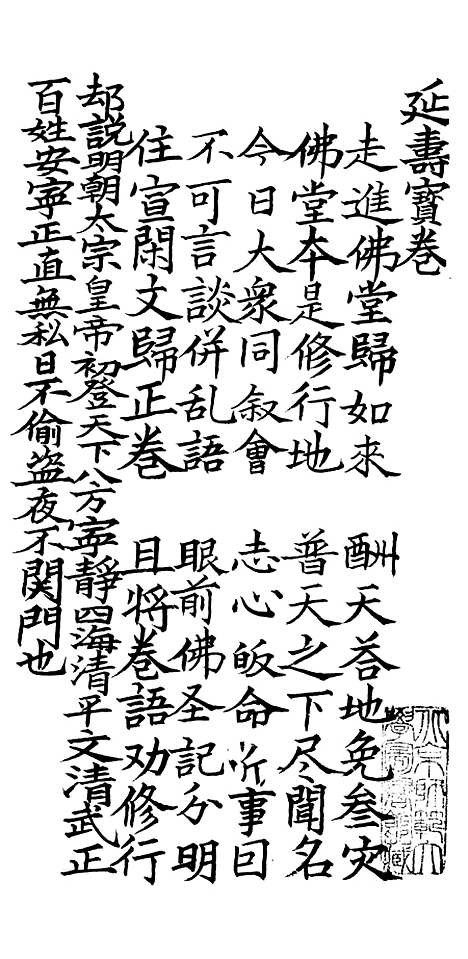 延壽寳卷
走進佛堂歸如来 酬天荅地免叁灾
佛堂夲是修行地 普天之下尽聞名
今日大衆同叙會 志心皈命事囙
不可言談併乱語 眼前佛圣記分明
住宣閑文歸正卷 且将卷語劝修行
却説明朝太宗皇帝初登天下八方寕靜四海清平文清武正
百姓安寕正直無私日不偷盗夜不関門也
北京師範大
學圖書館藏